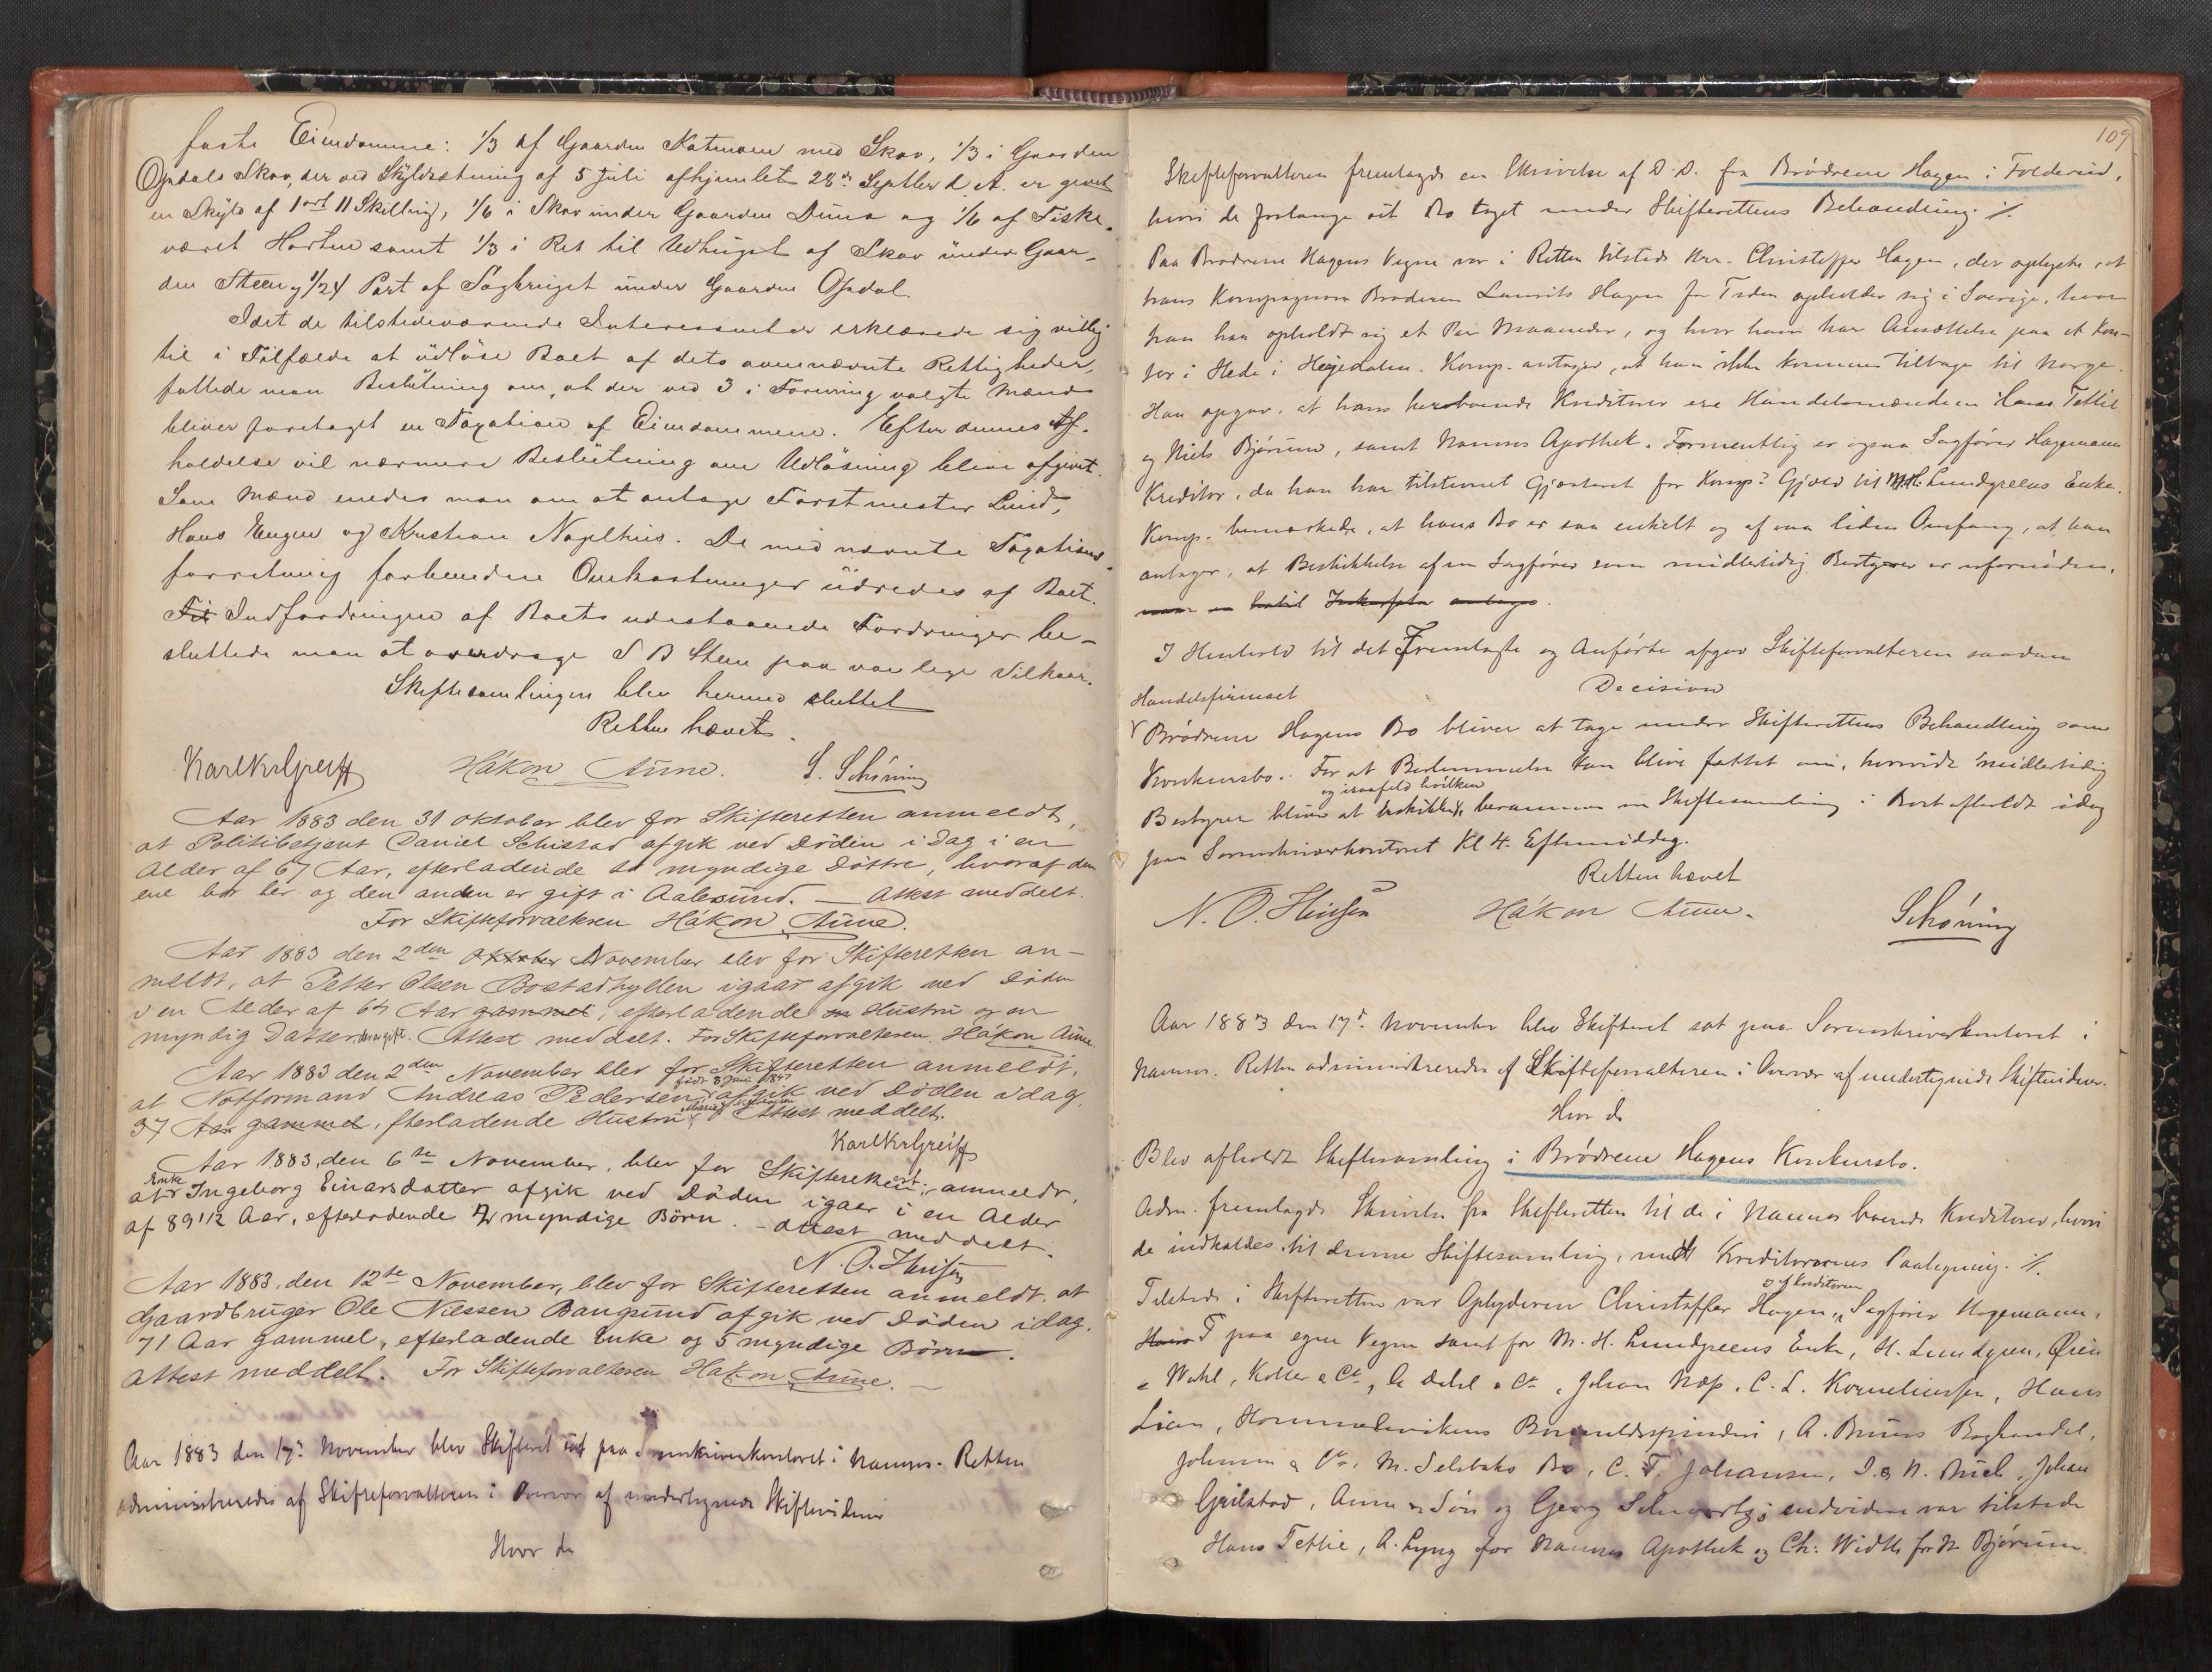 faste Eiendomme: 1/3 af Gaarden Katmoen med Skov, 1/3 i Gaarden
Opdals Skov, der ved Skyldsætning af 5 Juli afhjemlet 28de Septbr d. A. er givet
en Skyld af 1 ort 11 Skilling, 1/6 i Skov under Gaarden Duna og 1/6 af Fiske-
været Horten samt 1/3 i Ret til Udhugst af Skov under Gaar-
den Steen og 1/24 Part af Sagbruget under Gaarden Opdal.
Idet de tilstedeværende Interessenter erklærede sig villig
til i Tilfælde at udløse Boet af dets ovennævnte Rettigheder,
fattede man Beslutning om, at der ved 3 i Forening valgte Mænd
bliver foretaget en Taxation af Eiendommene. Efter dennes Af-
holdelse vil nærmere Beslutning om Udløsning blive afgivet.
Som Mænd enedes man om at antage Forstmester Lund,
Hans Engen og Kristian Nøglhus. De med nævnte Taxations-
forretning forbundne Omkostninger udredes af Boet.
Til Indfordringen af Boets udestaaende Fordringer be-
sluttede man at overdrage S B Steen paa vanlige Vilkaar.
Skiftesamlingen blev hermed sluttet
Retten hævet.
Karl Kr Greiff Håkon Aune. S. Schöning
Aar 1883 den 31 oktober blev for Skifteretten anmeldt,
at Politibetjent Daniel Schistad afgik ved Döden i Dag i en
Alder af 67 Aar, efterladende to myndige Döttre, hvoraf den
ene bor her og den anden er gift i Aalesund. — Attest meddelt.
For Skifteforvalteren Håkon Aune.
Aar 1883 den 2den Oktober November blev for Skifteretten an-
meldt, at Petter Olsen Bostadhyllen igaar afgik ved Döden
i en Alder af 64 Aar gammel, efterladende en Hustru og en
myndig Datter, som er gift. Attest meddelt. For Skifteforvalteren. Håkon Aune
Aar 1883 den 2den November blev for Skifteretten anmeldt,
at Notformand Andreas Pedersen, født 8 Juni 1847 afgik ved Döden idag,
37 Aar gammel, fterladende Hustru, Attest meddelt.
Karl Kr Greiff
Aar 1883, den 6te November, blev for Skifteretten anmeldt,
at Enke Ingeborg Einarsdatter afgik ved Döden igaar i en Alder
af 89 1/2 Aar, efterladende 4 myndige Börn. – Attest meddelt.
N. O. Hansen
Aar 1883, den 12te November, blev for Skifteretten anmeldt, at
Gaardbruger Ole Nilssen Bangsund afgik ved Döden idag,
71 Aar gammel, efterladende Enke og 5 myndige Börn.
Attest meddelt. For Skifteforvalteren Håkon Aune. —
Aar 1883 den 17de November blev Skifteret sat paa Sorenskriverkontoret i Namsos. Retten
administreredes af Skifteforvalteren i Overvær af undertegnede Skiftevidner
Hvor da
109
Skifteforvalteren fremlagde en Skrivelse af D. D. fra Brødrene Hagen i Foldereid,
hvori de forlange sit Bo taget under Skifterettens Behandling ./.
Paa Brødrene Hagens Vegne var i Retten tilstede Hr. Christoffer Hagen, der oplyste, at
hans Kompagnon Broderen Laurits Hagen for Tiden opholder sig i Sverige, hvor
han har opholdt sig et Par Maaneder, og hvor han har Ansættelse paa et Kon-
tor i Hede i Herjedalen. Komp. antager, at han ikke kommer tilbage til Norge.
Han opgav, at hans herboende Kreditorer ere Handelsmændene Hans Tettlie
og Niels Bjørum, samt Namsos Apothek. Formentlig er ogsaa Sagfører Hagemann
Kreditor, da han har tilstevnet Gjæsteret for Komp. Gjæld til M. H. Lundgreens Enke.
Komp. bemærkede, at hans Bo er saa enkelt og af saa liden Omfang, at han
antager, at Beskikkelse af en Sagfører som midlertidig Bestyrer er ufornöden.
I Henhold til det Fremlagte og Anførte afgav Skifteforvalteren saadan
Decision
Handelsfirmaet
Brødrene Hagens Bo bliver at tage under Skifterettens Behandling som
Konkursbo. For at Bestemmelse kan blive fattet om, hvorvidt midlertidig
og isaafald hvilken
Bestyrer bliver at beskikkes, berammes en Skiftesamling i Boet afholdt idag
paa Sorenskriverkontoret Kl 4. Eftermiddag.
Retten hævet
N. O. Hansen Håkon Aune. Schöning
Aar 1883 den 17de November blev Skifteret sat paa Sorenskriverkontoret i
Namsos. Retten administreredes af Skifteforvalteren i Overvær af undertegnede Skiftevidner.
Hvor da
Blev afholdt Skiftesamling i Brødrene Hagens Konkursbo.
Adm. fremlagde Skrivelse fra Skifteretten til de i Namsos boende Kreditorer, hvori
de indkaldes til denne Skiftesamling, med Kreditorernes Paategning ./.
Tilstede i Skifteretten var Opbyderen Christoffer Hagen, og af Kreditorer Sagfører Hagemann,
paa egne Vegne samt for M. H. Lundgreens Enke, H. Lundgren, Øien
& Wahl, Koller & Co, Dahl & Co, Johan Næss, C. L. Korneliussen, Hans
Lien, Hommelvikens Bomuldsspinderi, A. Bruns Boghandel,
Johnsen & Co, M. Selsbaks Bo, C. F. Johansen, I. & N. Buch, Johan
Grilstad, Aune & Søn og Georg Schwartz; endvidere var tilstede
Hans Tetlie, A. Lyng for Namsos Apothek og Ch. Width for N Bjørum.